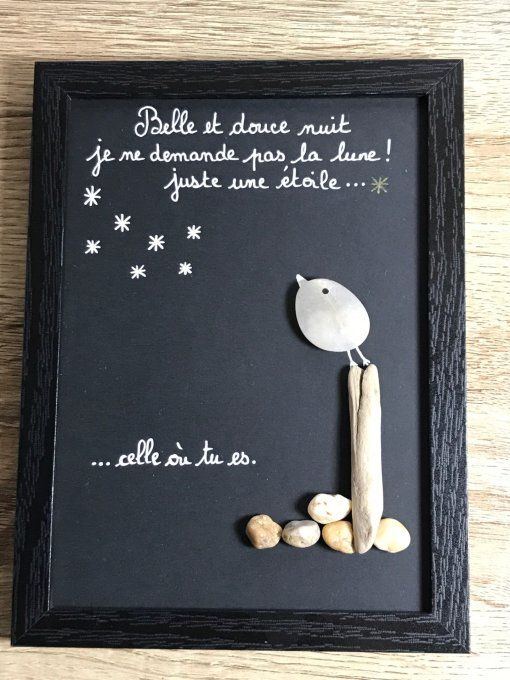 Belle et douce nuit
je ne demande pas la lune !
juste une étoile...
...celle où tu es.